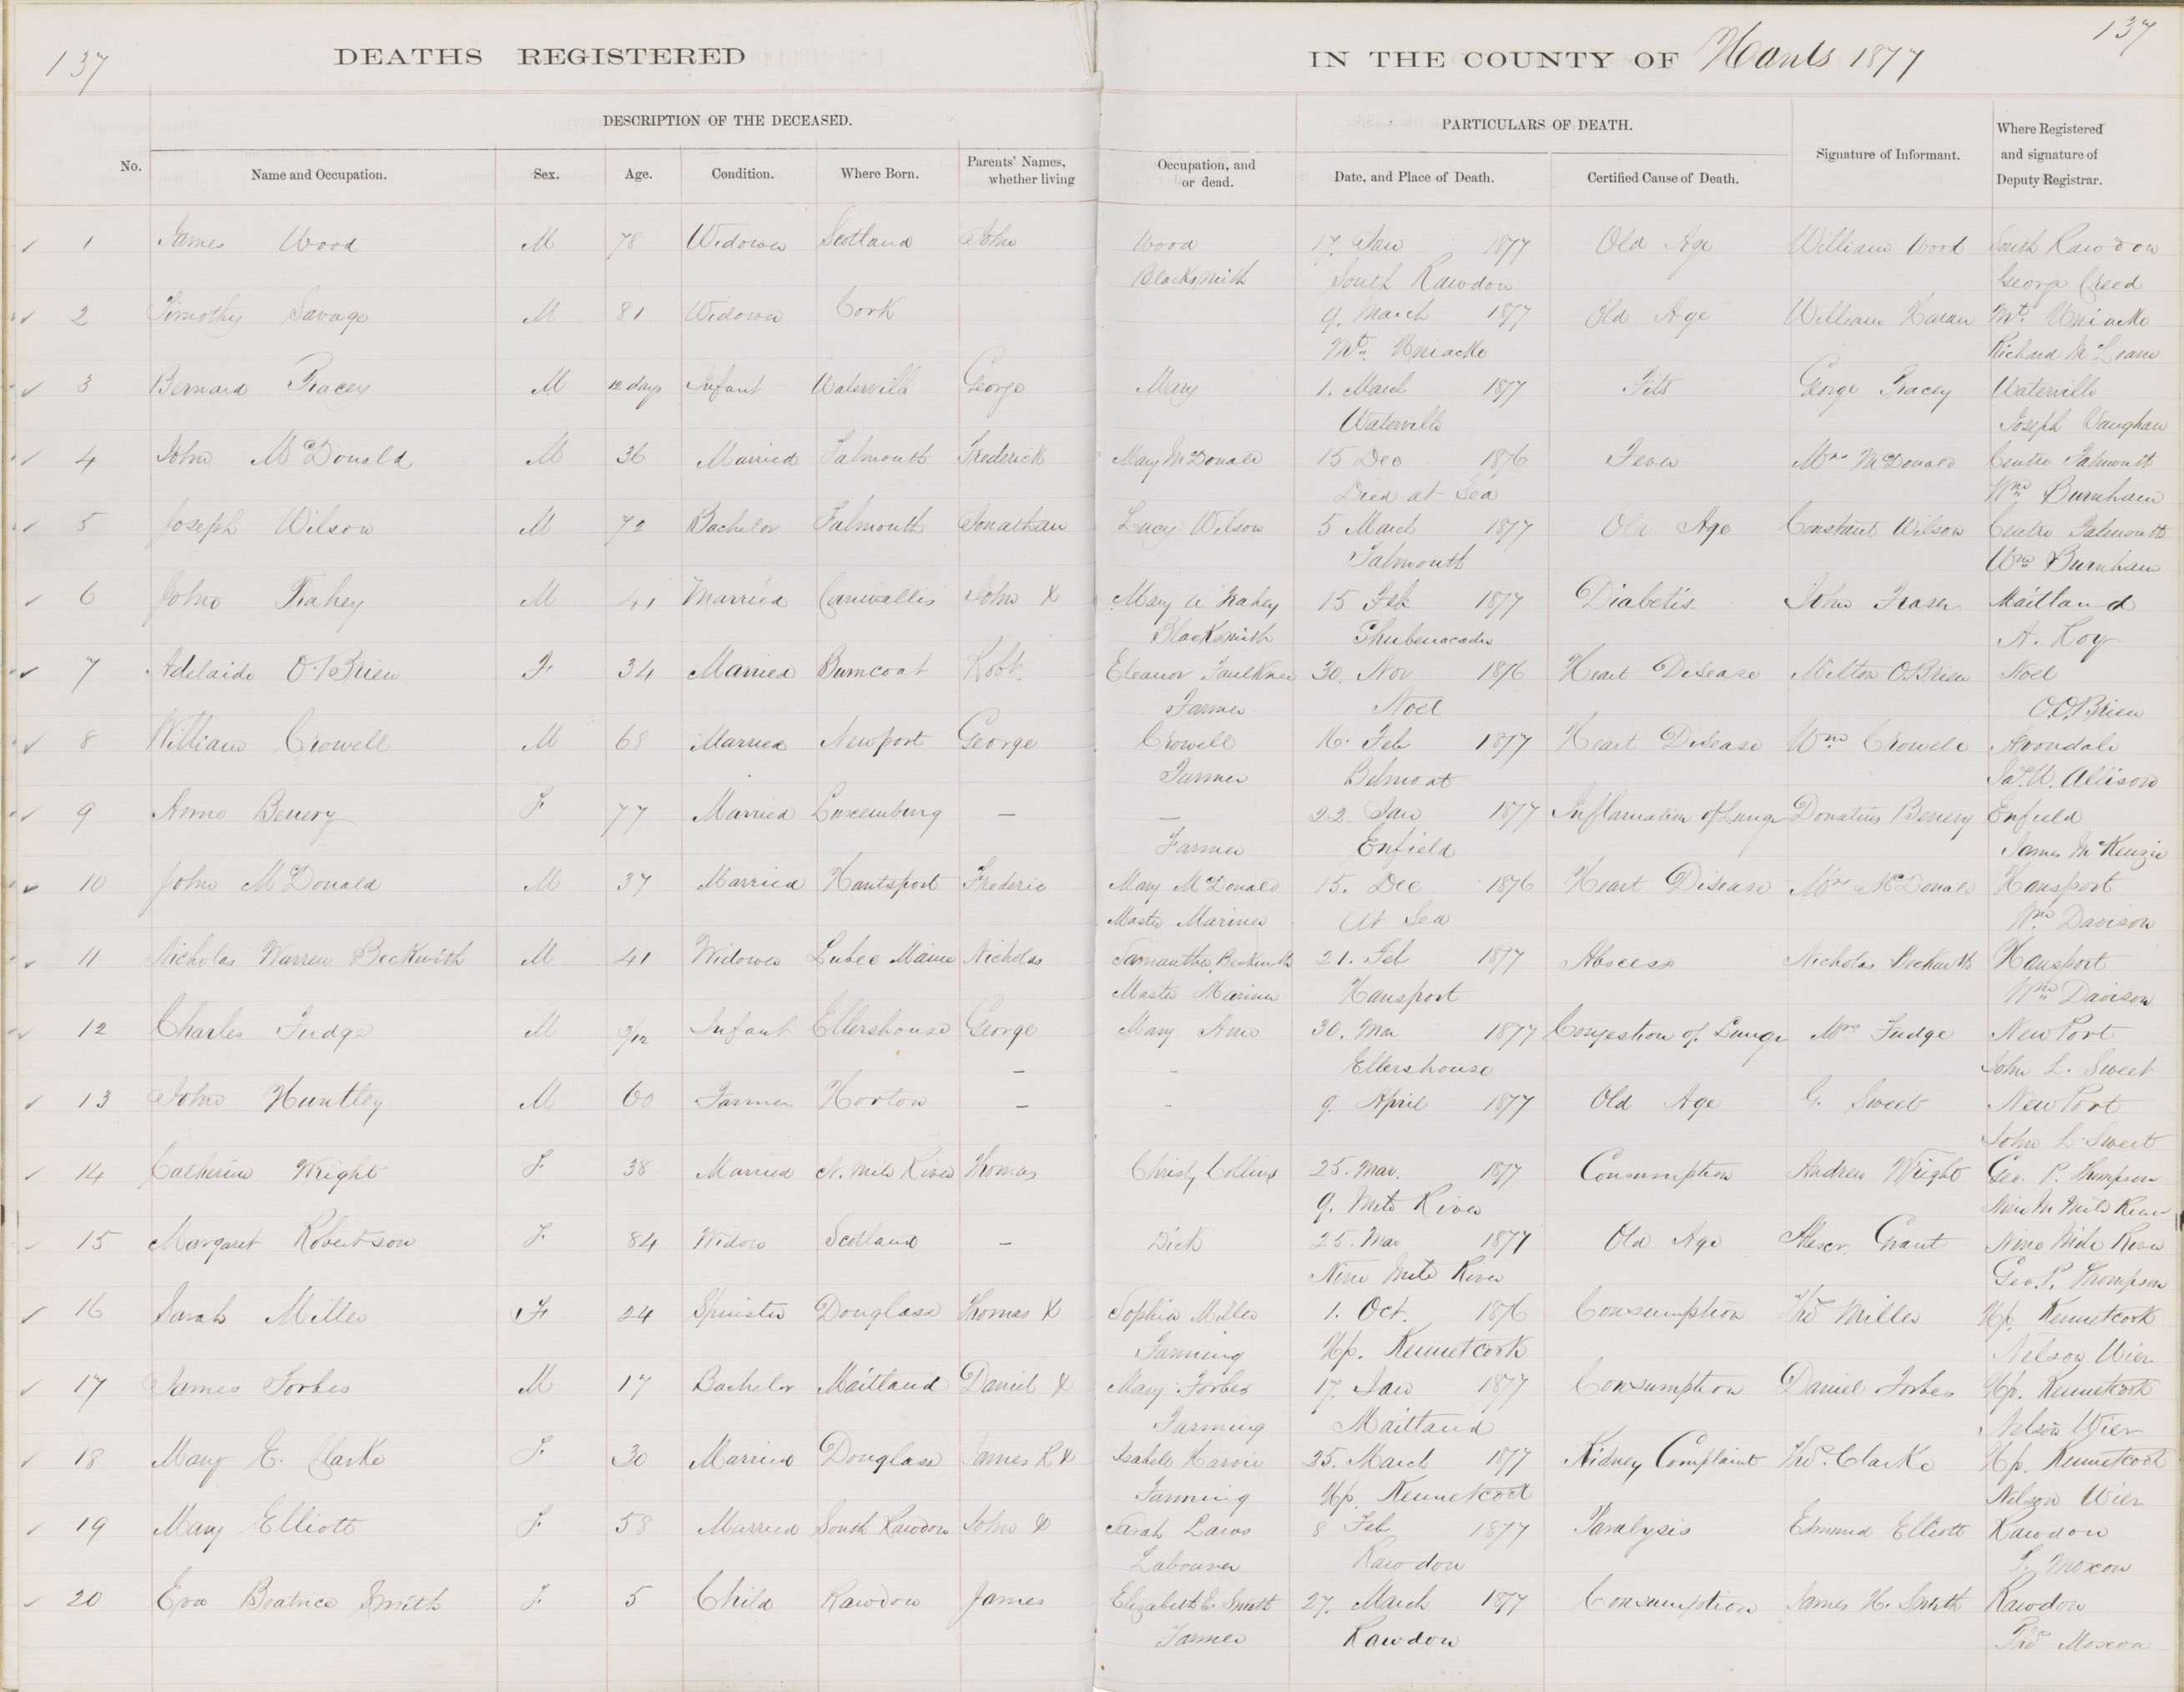 137 DEATHS REGISTERED IN THE COUNTY OF Hants 1877 137
DESCRIPTION OF THE DECEASED. PARTICULARS OF DEATH.
No. Name and Occupation. Sex. Age. Condition. Where Born. Parents' Names, whether living Occupation, and or dead. Date, and Place of Death. Certified Cause of Death. Signature of Informant. Where Registered and signature of Deputy Registrar.
1 James Wood M 78 Widower Scotland John Wood 17. Jan 1877 Old Age William Wood South Rawdon
Blacksmith South Rawdon George Creed
2 Timothy Savage M 81 Widower Cork 9. March 1877 Old Age William Mt. Uniacke
Mt. Uniacke Richard McLearn
3 Bernard Tracey M 12 days Infant Waterville George Mary 1. March 1877 Fits George Tracey Waterville
Waterville Joseph Vaughan
4 John McDonald M 36 Married Falmouth Frederick Mary McDonald 15 Dec 1876 Fever Mrs McDonald Centre Falmouth
Died at Sea Wm Burnham
5 Joseph Wilson M 72 Bachelor Falmouth Jonathan Lucy Wilson 5 March 1877 Old Age Constant Wilson Centre Falmouth
Falmouth Wm Burnham
6 John Fahey M 41 Married Cornwallis John X Mary A Fahey 15 Feb 1877 Diabetis John Fraser Maitland
Blacksmith Shubenacadie A. Roy
7 Adelaide O'Brien F 34 Married Burncoat Robt. Eleanor Faulkner 30. Nov 1876 Heart Disease Milton O'Brien Noel
Farmer Noel O. O'Brien
8 William Crowell M 68 Married Newport George Crowell 16. Feb 1877 Heart Disease Wm Crowell Avondale
Farmer Belmont Jas. W. Allison
9 Anne Benery F 77 Married Luxemburg — — 22. Jan 1877 Inflamation of Lungs Donatius Benery Enfield
Farmer Enfield James McKenzie
10 John McDonald M 37 Married Hantsport Frederic Mary McDonald 15. Dec 1876 Heart Disease Mrs McDonald Hansport
Master Mariner At Sea Wm Davison
11 Nicholas Warren Beckwith M 41 Widower Lubec Maine Nicholas Samantha Beckwith 21. Feb 1877 Abscess Nicholas Beckwith Hansport
Master Mariner Hansport Wm Davison
12 Charles Judge M 9/12 Infant Ellershouse George Mary Ann 30. Mar 1877 Congestion of Lungs Mrs Judge NewPort
— — Ellershouse John L. Sweet
13 John Huntley M 60 Farmer Horton — — 9. April 1877 Old Age G. Sweet NewPort
John L. Sweet
14 Catherine Wright F 38 Married N. Mile River Thomas Christy Collins 25. Mar. 1877 Consumption Andrew Wright Geo. P. Thompson
9. Mile River Nine M Mile River
15 Margaret Robertson F. 84 Widow Scotland — Dick 25. Mar 1877 Old Age Alexr. Grant Nine Mile River
Nine Mile River Geo. P. Thompson
16 Sarah Miller F 24 Spinster Douglass Thomas X Sophia Miller 1. Oct. 1876 Consumption Thos Miller Up. Kennetcook
Farming Up. Kennetcook Nelson Wier
17 James Forbes M 17 Bachelor Maitland Daniel X Mary Forbes 17. Jan 1877 Consumption Daniel Forbes Up. Kennetcook
Farming Maitland Nelson Wier
18 Mary E. Clarke F. 30 Married Douglass James R X Isabell Harvie 25. March 1877 Kidney Complaint Thos. Clarke Up. Kennetcook
Farming Up. Kennetcook Nelson Wier
19 Mary Elliott F. 58 Married South Rawdon John X Sarah Laws 8 Feb 1877 Paralysis Edmund Elliott Rawdon
Labourer Rawdon T. Moxon
20 Eva Beatrice Smith F. 5 Child Rawdon James Elizabeth E. Smith 27. March 1877 Consumption James H. Smith Rawdon
Farmer Rawdon Thos Moxon